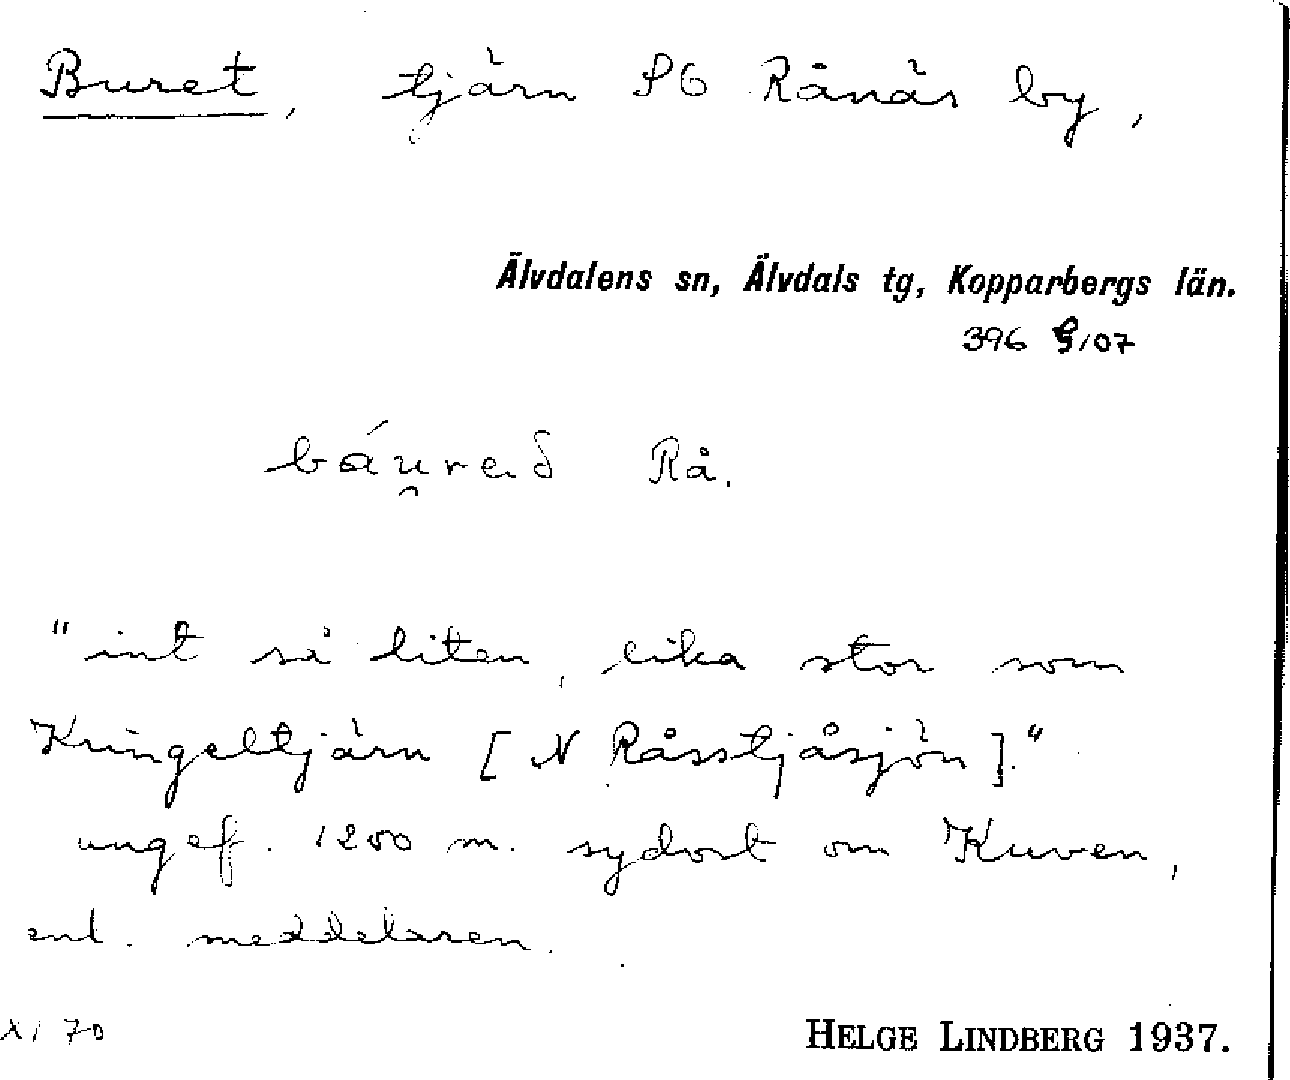 Buret, tjärn SO Rånäs by,
Älvdalens sn, Älvdals tg, Kopparbergs län.
396 107
Rå.
"int så liten, lika stor som
Kringeltjärn [N Råsstjåsjön]."
ungef. 1200 m. sydost om Kuven,
enl. meddelaren.
XI 70
HELGE LINDBERG 1937.